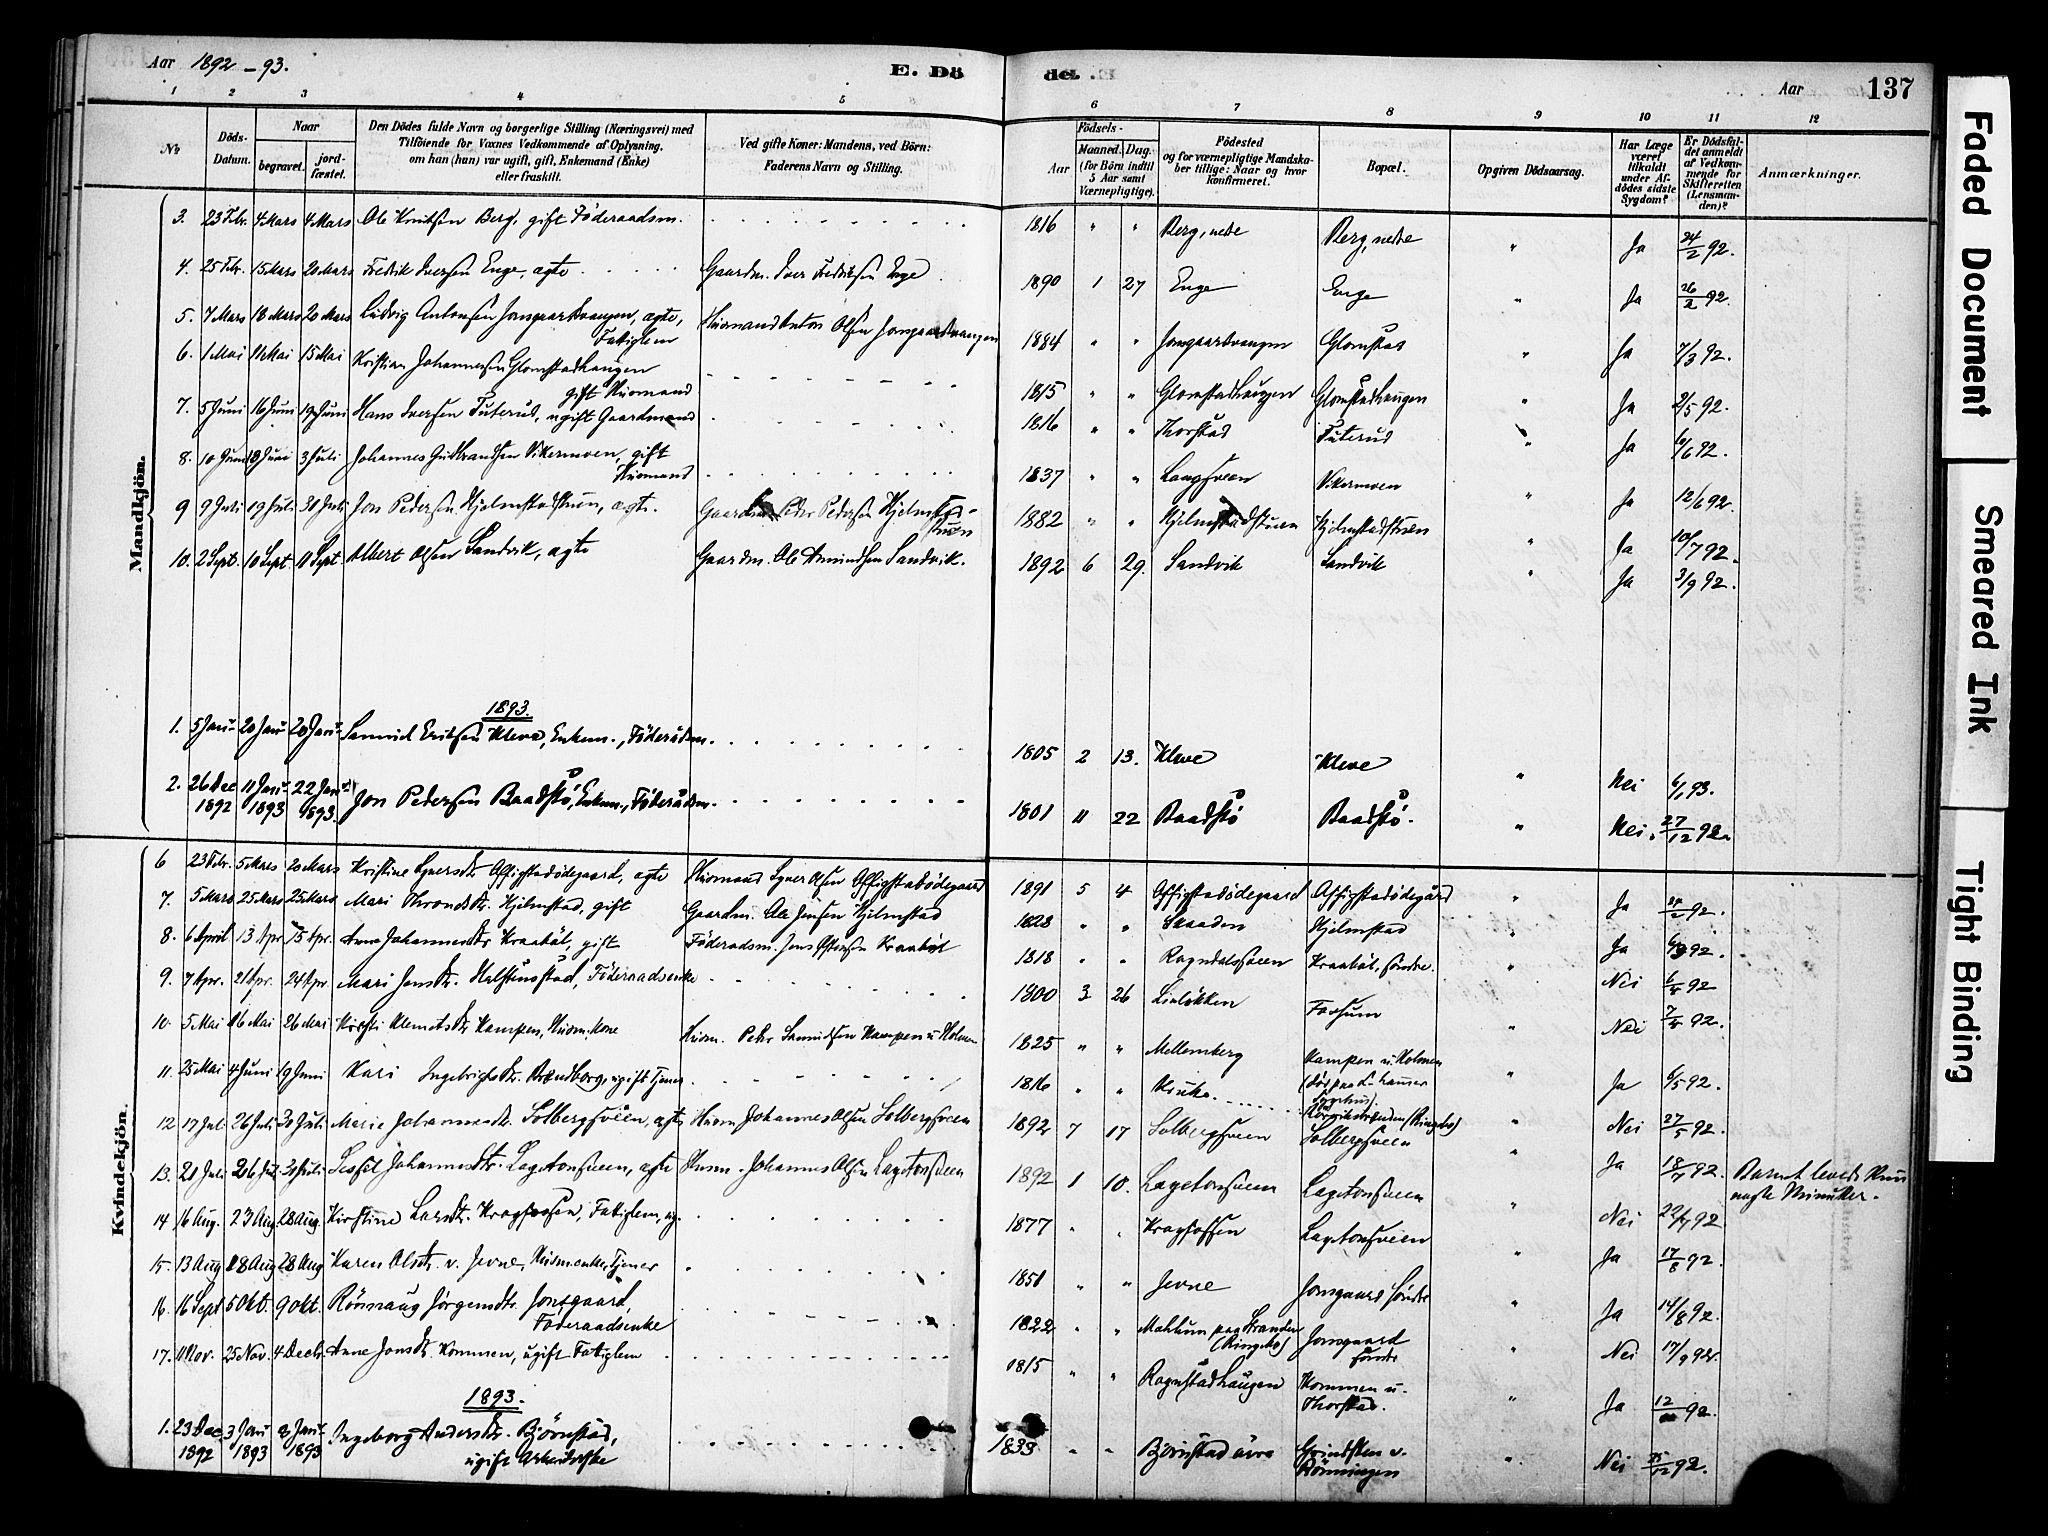 Aar 1892-93.
E. Dö
de. E
Aar
137
1 2 3 4 5 6 7 8 9 10 11 12
No
Döds-Datum.
Naar
begravet.
jord-fæstet.
Den Dödes fulde Navn og borgerlige Stilling (Næringsvei) med
Tilföiende for Voxnes Vedkommende af Oplysning,
om han (hun) var ugift, gift, Enkemand (Enke)
eller fraskilt.
Ved gifte Koner: Mandens, ved Börn:
Faderens Navn og Stilling.
Födsels-
Aar
Maaned.
Dag.
(for Börn indtil
5 Aar samt
Værnepligtige).
Födested
og for værnepligtige Mandska-
ber tillige: Naar og hvor
konfirmeret.
Bopæl.
Opgiven Dödsaarsag.
Har Læge
været
tilkaldt
under Af-
dödes sidste
Sygdom?
Er Dödsfal-
det anmeldt
af Vedkom-
mende for
Skifteretten
(Lensman-
den)?
Anmærkninger.
Mandkjön.
3. 23 Febr. 4 Mars 4 Mars Ole Knutsen Berg, gift Föderaadsm. 1816 " " Berg, nedre Berg, nedre " Ja 24/2 92.
4. 25 Febr. 15 Mars 20 Mars Fredrik Iversen Enge, ægte Gaardm. Iver Fredriksen Enge 1890 1 27 Enge Enge " Ja 26/2 92.
5. 7 Mars 18 Mars 20 Mars Ludvig Antonsen Jonsgaardvangen, ægte, Fattiglem Husmand Anton Olsen Jonsgaardvangen 1884 " " Jonsgaardvangen Glomstad " Ja 7/3 92.
6. 1 Mai 11 Mai 15 Mai Kristian Johannessen Glomstadhaugen gift Husmand 1815 " " Glomstadhaugen Glomstadhaugen " Ja 2/5 92.
7. 5 Juni 16 Juni 19 Juni Hans Iversen Tuterud, ugift Gaardmand 1816 " " Thorstad Tuterud " Ja 6/6 92.
8. 10 Juni 18 Juni 3 Juli Johannes Gudbrandsen Vikermoen, gift Husmand 1837 " " Langsveen Vikermoen " Ja 12/6 92.
9 9 Juli 19 Juli 30 Juli Jon Pedersen Hjelmstadstuen, ægte. Gaardm. Peder Pedersen Hjelmstad-stuen 1882 " " Hjelmstadstuen Hjelmstadstuen " Ja 10/7 92.
10. 2 Sept. 10 Sept 11 Sept. Albert Olsen Sandvik, ægte Gaardm. Ole Amundsen Sandvik. 1892 6 29. Sandvik Sandvik " Ja 3/9 92.
1893.
1. 5 Janu- 20 Janu- 20 Janu- Samuel Eriksen Kleve, Enkem., Föderaadsm. 1805 2 13. Kleve Kleve " Nei 6/1 93.
2. 26 Dec 1892 11 Janu- 1893 22 Janu- 1893. Jon Pedersen Baadstö, Enkem., Föderaadsm. 1801 11 22 Baadstö Baadstö. " Nei. 27/12 92.
Kvindekjön.
6 23 Febr. 5 Mars 20 Mars Kristine Syversdtr. Offigstadödegaard, ægte Husmand Syver Olsen Offigstadödegaard 1891 5 4 Offigstadödegaard Offigstadödegård " Ja 24/2 92.
7. 5 Mars 25 Mars 25 Mars Mari Throndsdtr. Hjelmstad, gift Gaardm. Ole Jensen Hjelmstad 1828 " " Skaaden Hjelmstad " Ja 6/3 92.
8. 6 April 13 Apr 15 Apr. Anne Johannesdtr Kraaböl, gift Föderaadsm. Jens Ostensen Kraaböl 1818 " " Kraaböl, söndre. " Nei 6/4 92
9. 7 Apr. 21 Apr. 24 Apr. Mari Jonsdtr. Halstensstad, Föderaadsenke 1800 3 26 Linlökken Forsum " Nei 7/4 92.
10. 5 Mai 16 Mai 26 Mai Kirsti Klemetsdtr Kampen, Husm.kone Husm. Peder Samuelsen Kampen u. Holmen 1825 " " Mellemberg Kampen u. Holmen " Ja 6/5 92.
11. 25 Mai 4 Juni 19 Juni Kari Ingebrigtsdtr. Brandborg, ugift Tjener 1816 " " Kruke (Död paa Lillehammer Sygehus). " Nei 27/5 92.
12 17 Juli 26 Juli 30 Juli Marie Johannesdtr. Solbergsveen, ægte Husm Johannes Olsen Solbergsveen 1892 7 17 Solbergsveen (Ringebo) Solbergsveen " Ja 18/7 92. Barnet levede kun nogle Minutter.
13. 20 Juli 26 Juli 30 Juli Sessel Johannesdtr. Lagetonsveen, ægte Husm. Johannes Olsen Lagetonsveen 1892 1 10. Lagetonsveen Lagetonsveen " Nei 22/7 92
14 16 Aug. 23 Aug 28 Aug. Kirstine Larsdtr. Kragfossen, Fattiglem, ug. 1877 " " Kragfossen Lagetonsveien " Ja 17/8 92.
15. 13 Aug 18 Aug 28 Aug Karen Olsdtr. v. Jevne, Husm.enke, Tjener 1851 " " Jevne Jonsgaard söndre " Ja 14/8 92.
16. 16 Sept 5 Okt. 9 Okt. Rönnaug Jörgensdtr. Jonsgaard, Föderaadsenke 1822 " " Mæhlum paa Stranden (Ringebo) Jonsgaard söndre " Nei 17/9 92.
17. 11 Nov. 25 Nov. 4 Decbr. Anne Jonsdtr. Kommen, ugift Fattiglem 1815 " " Rognstadhaugen Kommen u. Thorstad. " Ja 12/11 92.
1893.
1. 23 Dec 1892 3 Janu 1893 8 Janu- 1893 Ingeborg Andersdtr. Björnstad, ugift Arbeiderske 1833 " " Björnstad övre Grindsten v. Rönningen " Nei 25/12 92.
Faded Document
Smeared Ink
Tight Binding